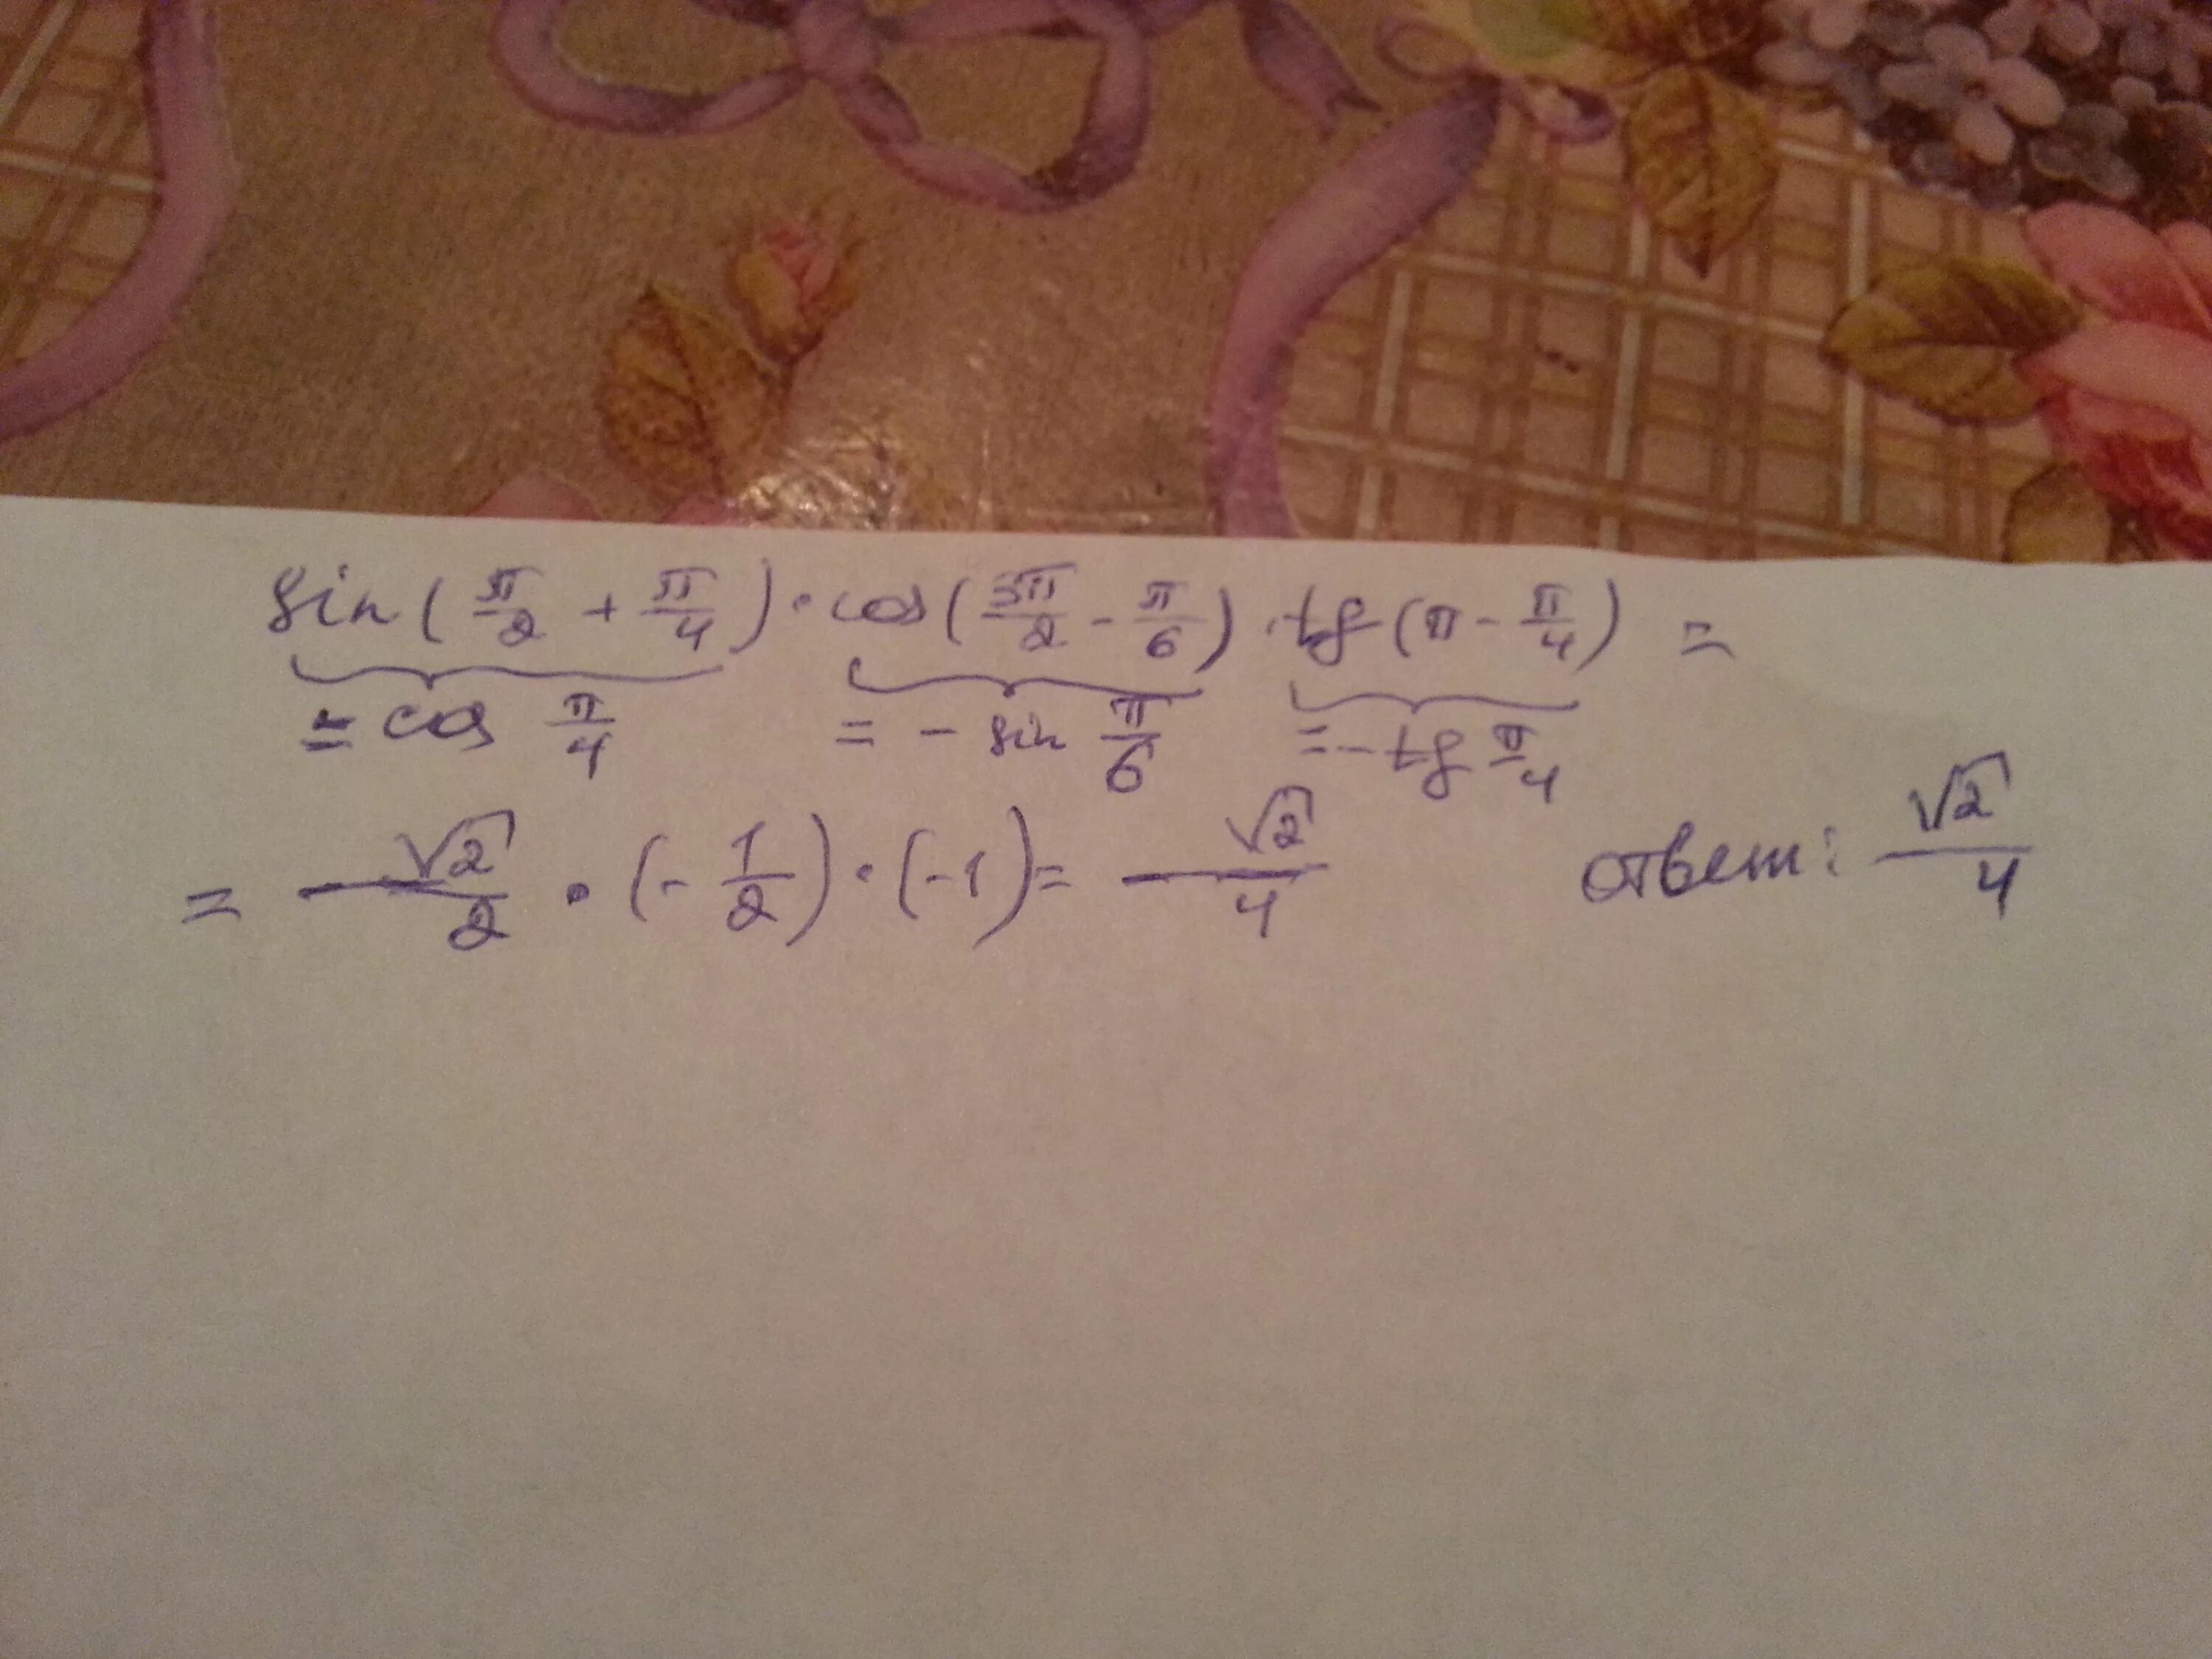 sin(π/2 + π/4) · cos(3π/2 - π/6) · tg(π - π/4) =
= cos π/4 = - sin π/6 = - tg π/4
= √2/2 · (- 1/2) · (-1) = √2/4 ответ: √2/4